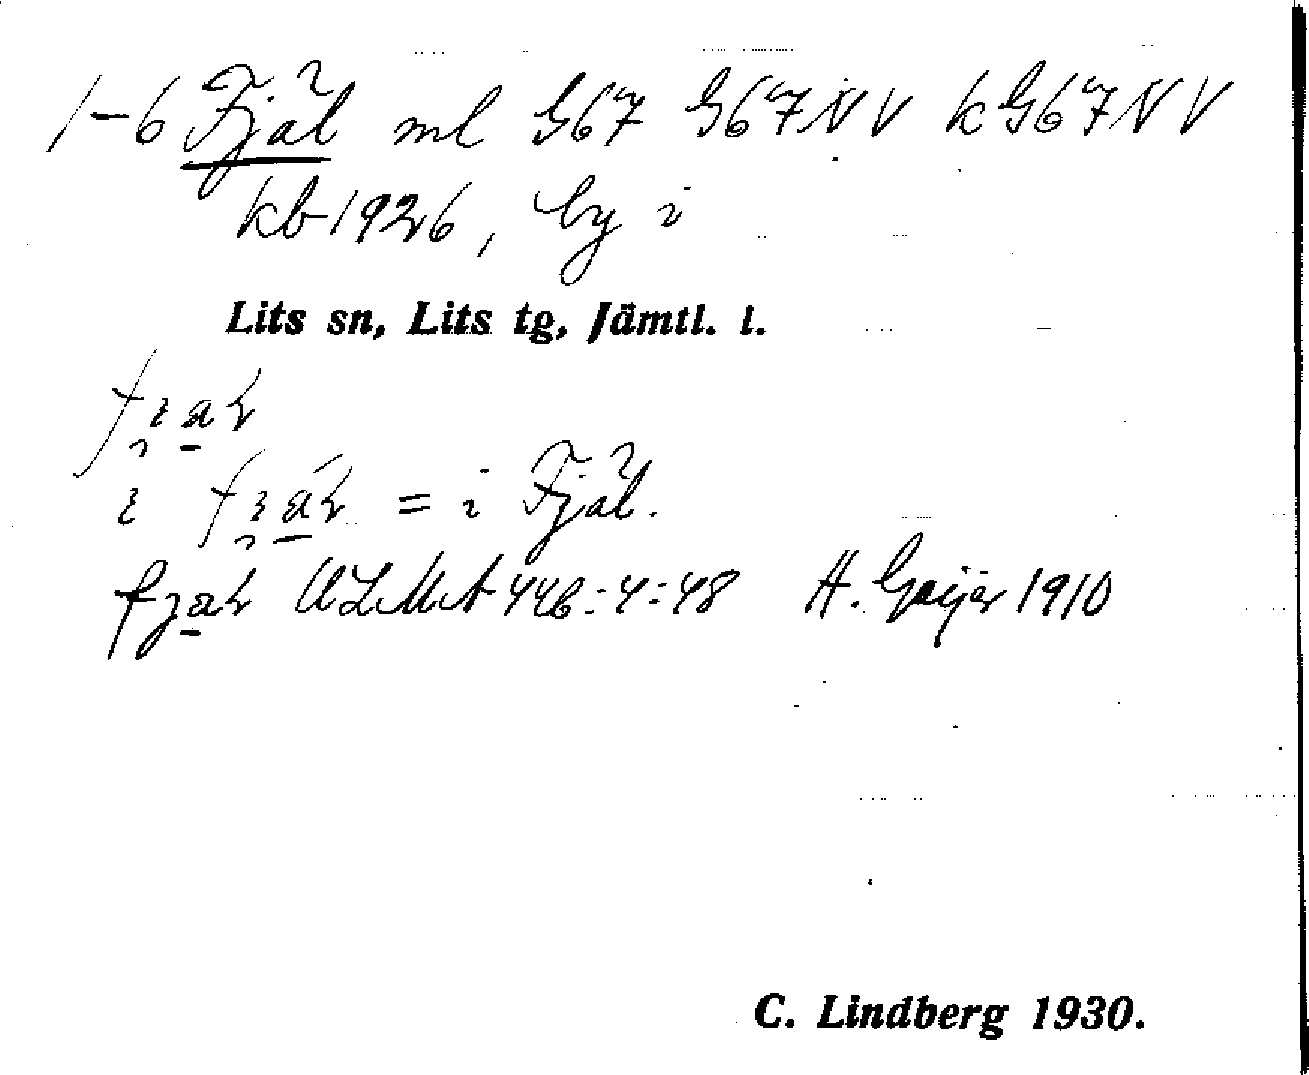 1-6 Fjål ml G67 G67NV kG67NV
kb 1926, by i
Lits sn, Lits tg, Jämtl. l.
= i Fjål.
ULMA 446:4:48 H. Geijer 1910
C. Lindberg 1930.